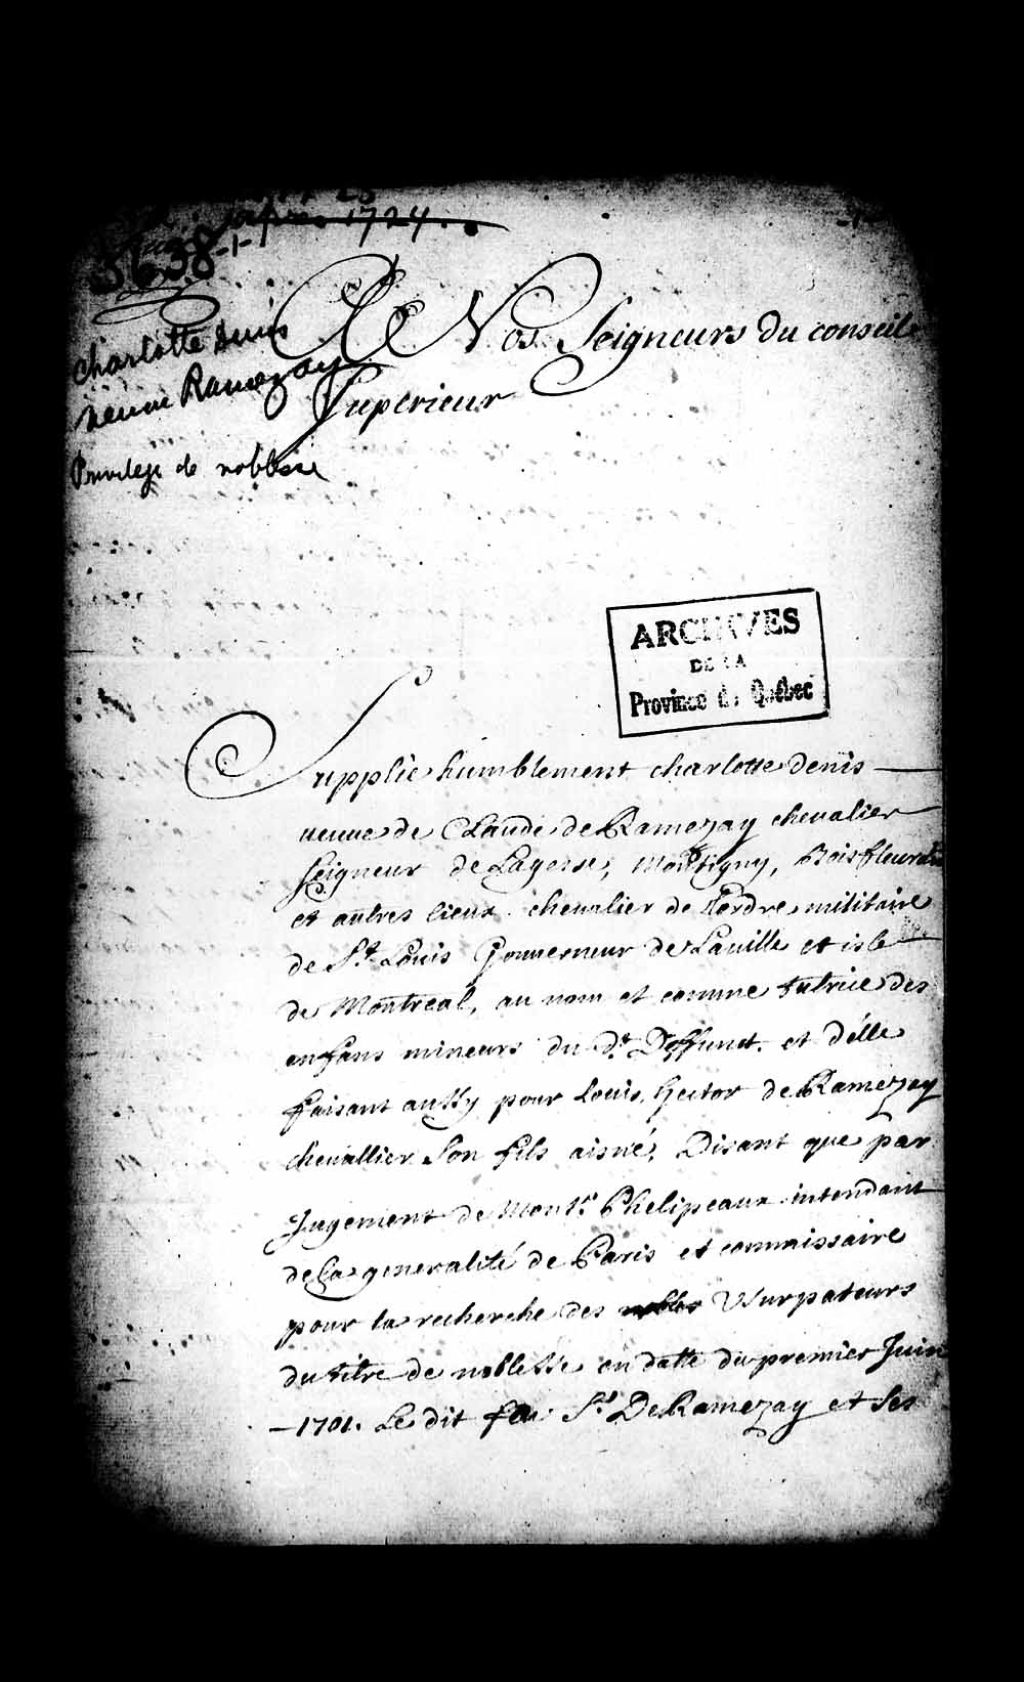 1724.
3638
-1-
Charlotte Denis
veuve Ramezay
Privilege de noblesse
A Nos Seigneurs du conseil
Superieur
ARCHIVES
DE LA
Province de Québec
Supplie humblement charlotte denis
veuve de Claude de Ramezay chevalier
Seigneur de Lagesse, Montigny, Boisfleurent
et autres lieux chevalier de Lordre militaire
de St. Louis Gouverneur de Laville et isle
de Montreal, au nom et comme tutrice des
enfans mineurs du dt. Deffunct. et d'elle
faisant aussy pour Louis, hector de Ramezay
chevallier Son fils aisné, Disant que par
Jugement de Monsr. Phelipeaux intendant
de la generalité de Paris et commissaire
pour la recherche des Usurpateurs
du titre de noblesse en datte du premier Juin
-1701. Le dit feu Sr. De Ramezay et Ses